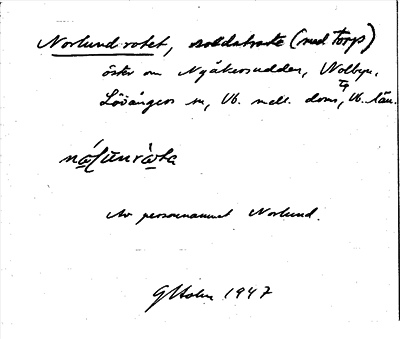 Norlund-rotet, soldatrote (med torp)
öster om Nyåkersudden, Nolbyn,
Lövångers sn, Vb. mell. doms, Vb. län.
Av personnamnet Norlund.
GHolm 1947